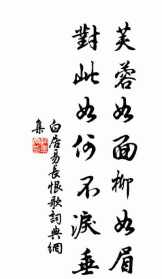 芙蓉如面柳如眉
對此如何不淚垂
白居易長恨歌詞典網
集